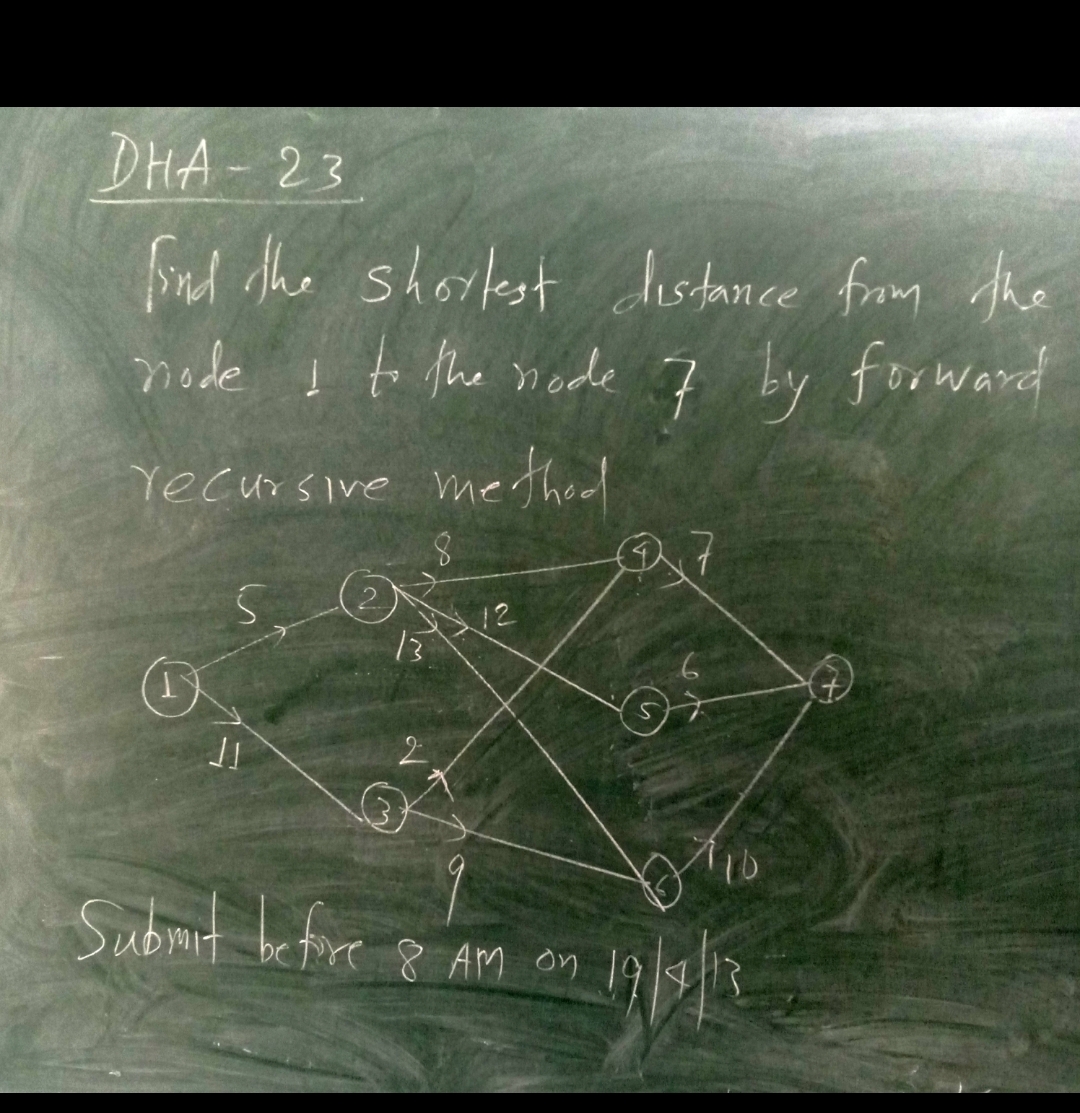 DHA - 23
Find the shortest distance from the
node 1 to the node 7 by forward
recursive method
8
4
7
5
2
12
13
1
6
7
5
11
2
3
9
6
10
Submit before 8 AM on 19/4/13